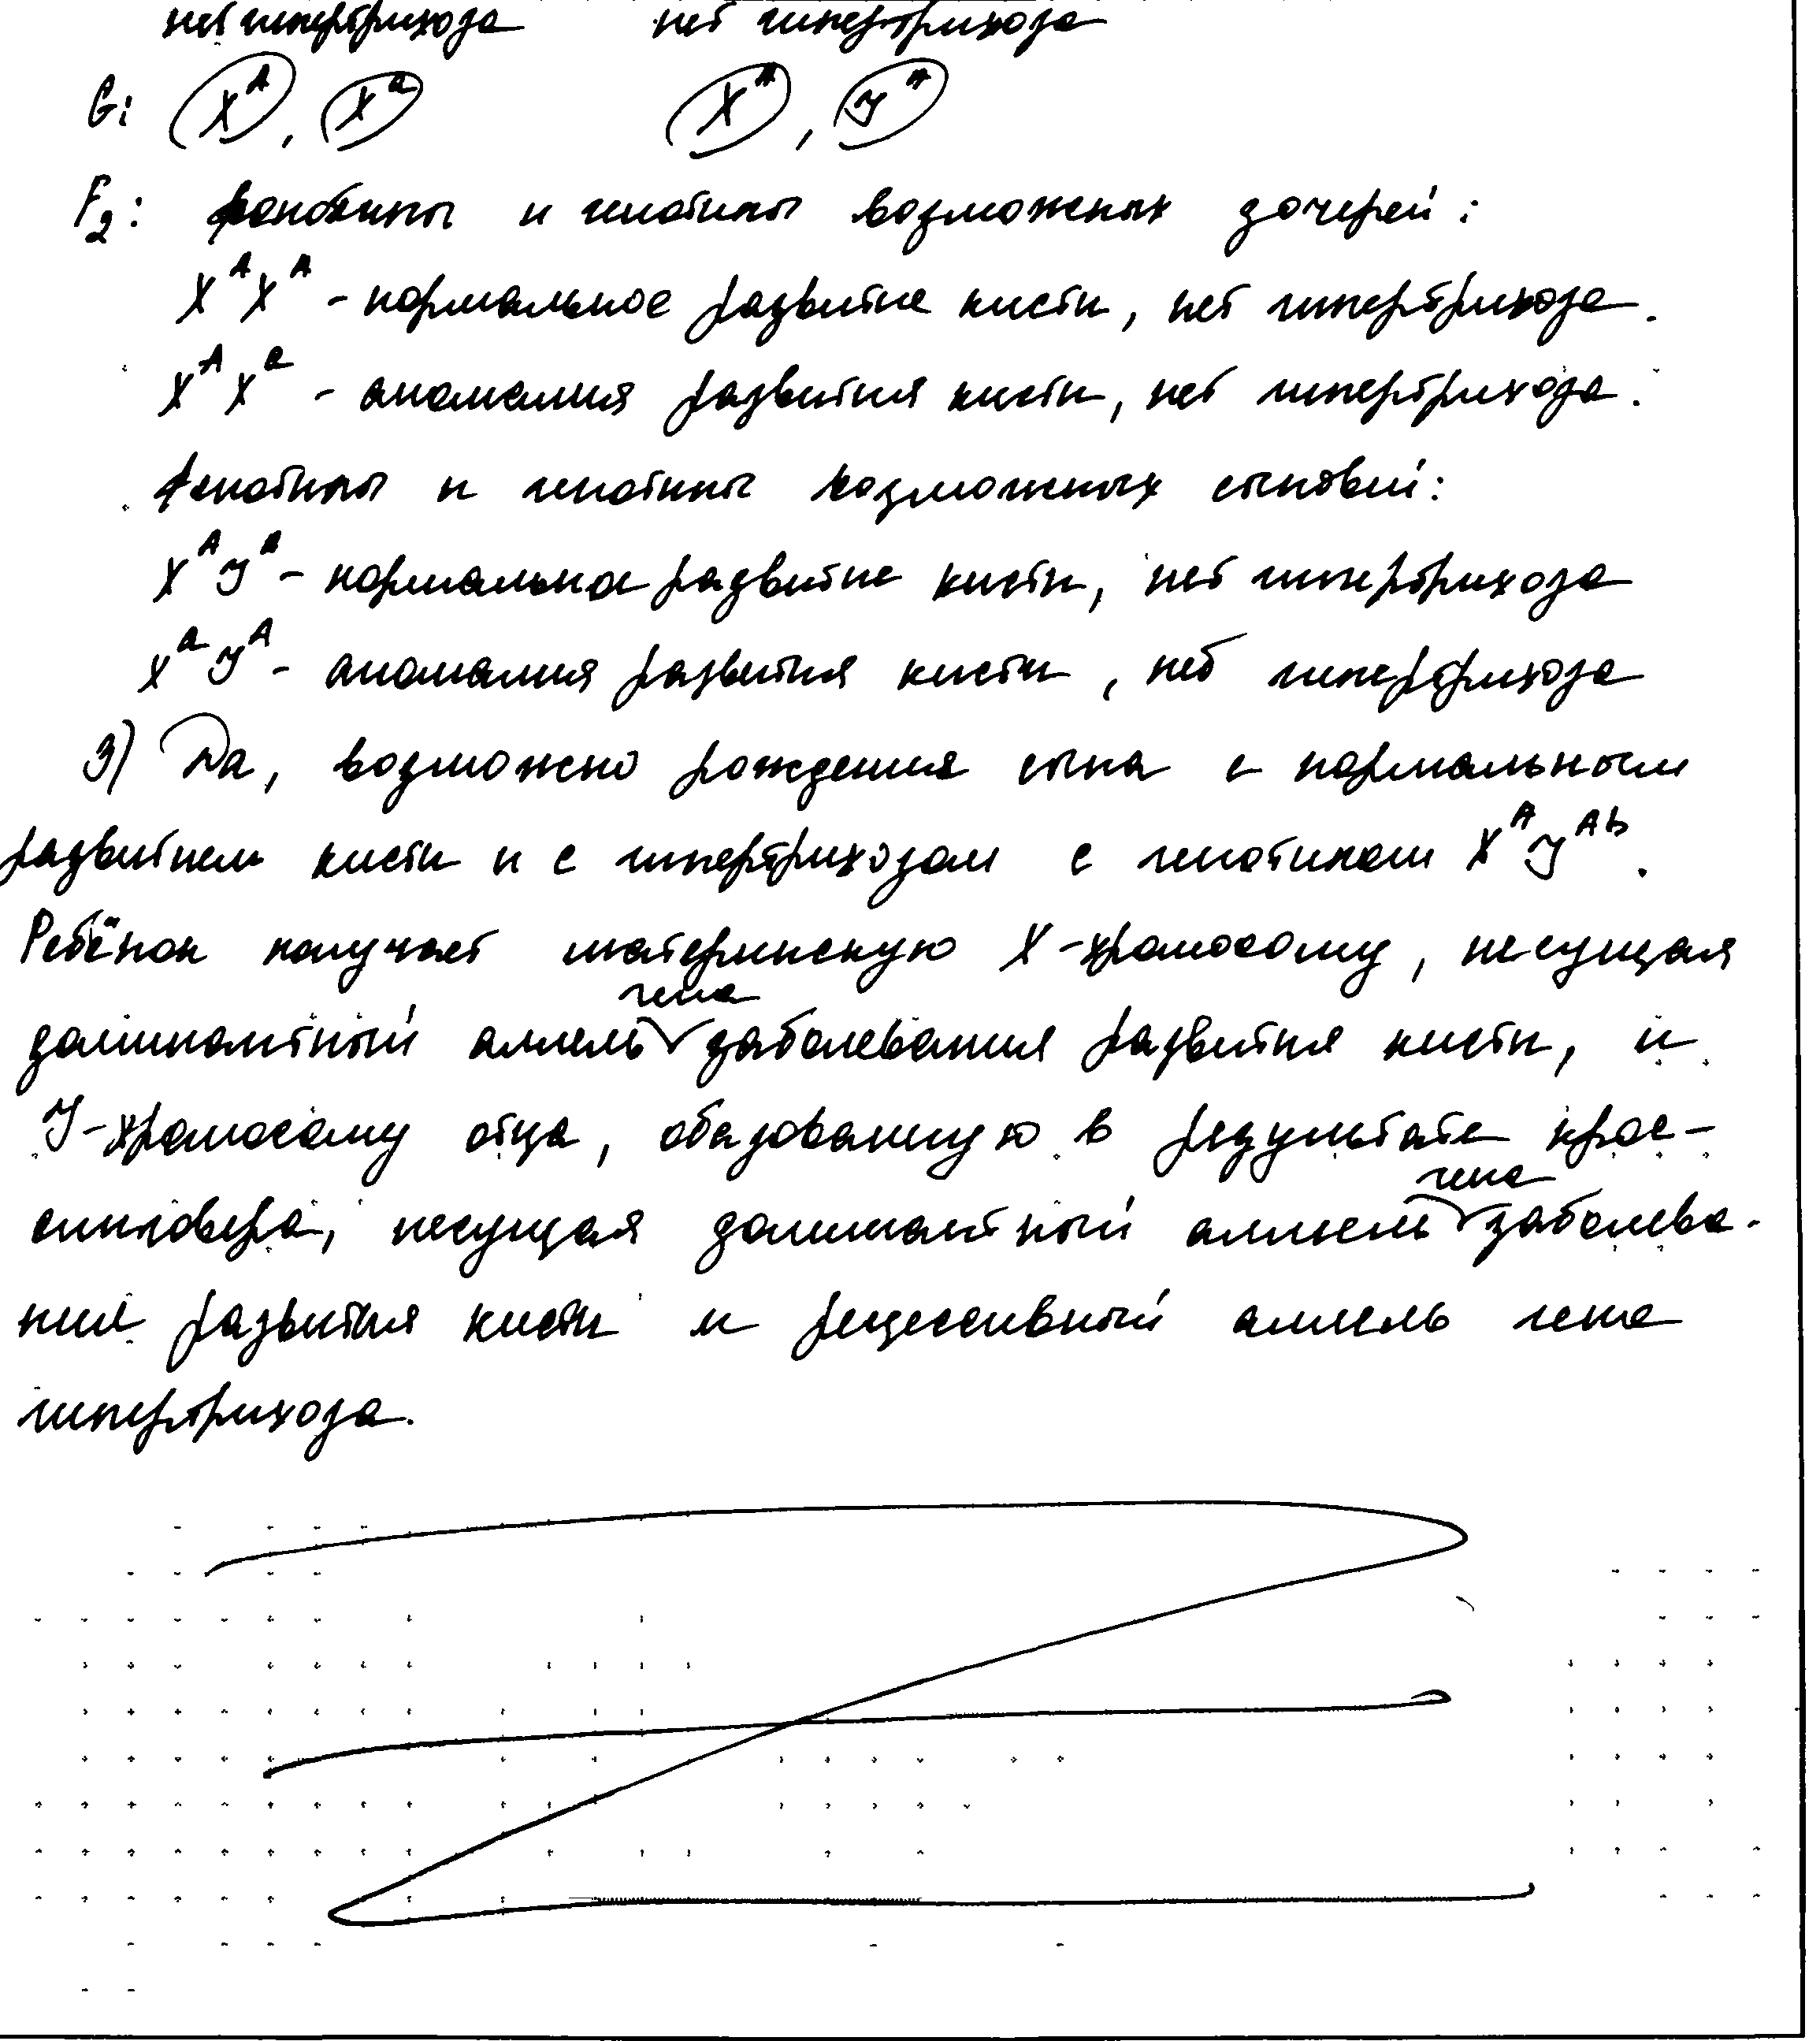 нет гипертрихоза нет гипертрихоза
G: X^A, X^a X^A, У^A
F₂: фенотипы и генотипы возможных дочерей:
X^A X^A - нормальное развитие кисти, нет гипертрихоза.
X^A X^a - аномалия развития кисти, нет гипертрихоза.
фенотипы и генотипы возможных сыновей:
X^A У^A - нормальное развитие кисти, нет гипертрихоза
X^a У^A - аномалия развития кисти, нет гипертрихоза
3) Да, возможно рождения сына с нормальным
развитием кисти и с гипертрихозом с генотипом X^A У^Ab.
Ребёнок получает материнскую X-хромосому, несущая
доминантный аллель гена заболевания развития кисти, и
У-хромосому отца, обазованную в результате крос-
синговера, несущая доминантный аллель гена заболева-
ния развития кисти и рецессивный аллель гена
гипертрихоза.